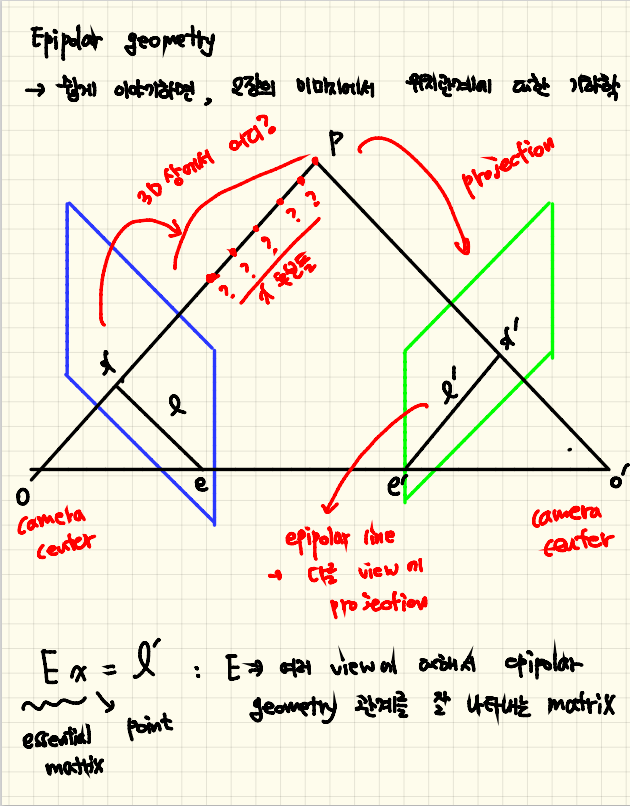 Epipolar geometry
→ 쉽게 이야기하면, 2장의 이미지에서 위치관계에 대한 기하학
3D상에서 어디?
P
projection
?. ?. ?. ?. ?
x 후보들
x
x'
l
l'
O
e
e'
o'
camera
center
camera
center
epipolar line
→ 다른 view에
projection
E x = l' : E ⇒ 여러 view에 대해서 epipolar
geometry 관계를 잘 나타내는 matrix
essential
matrix
point